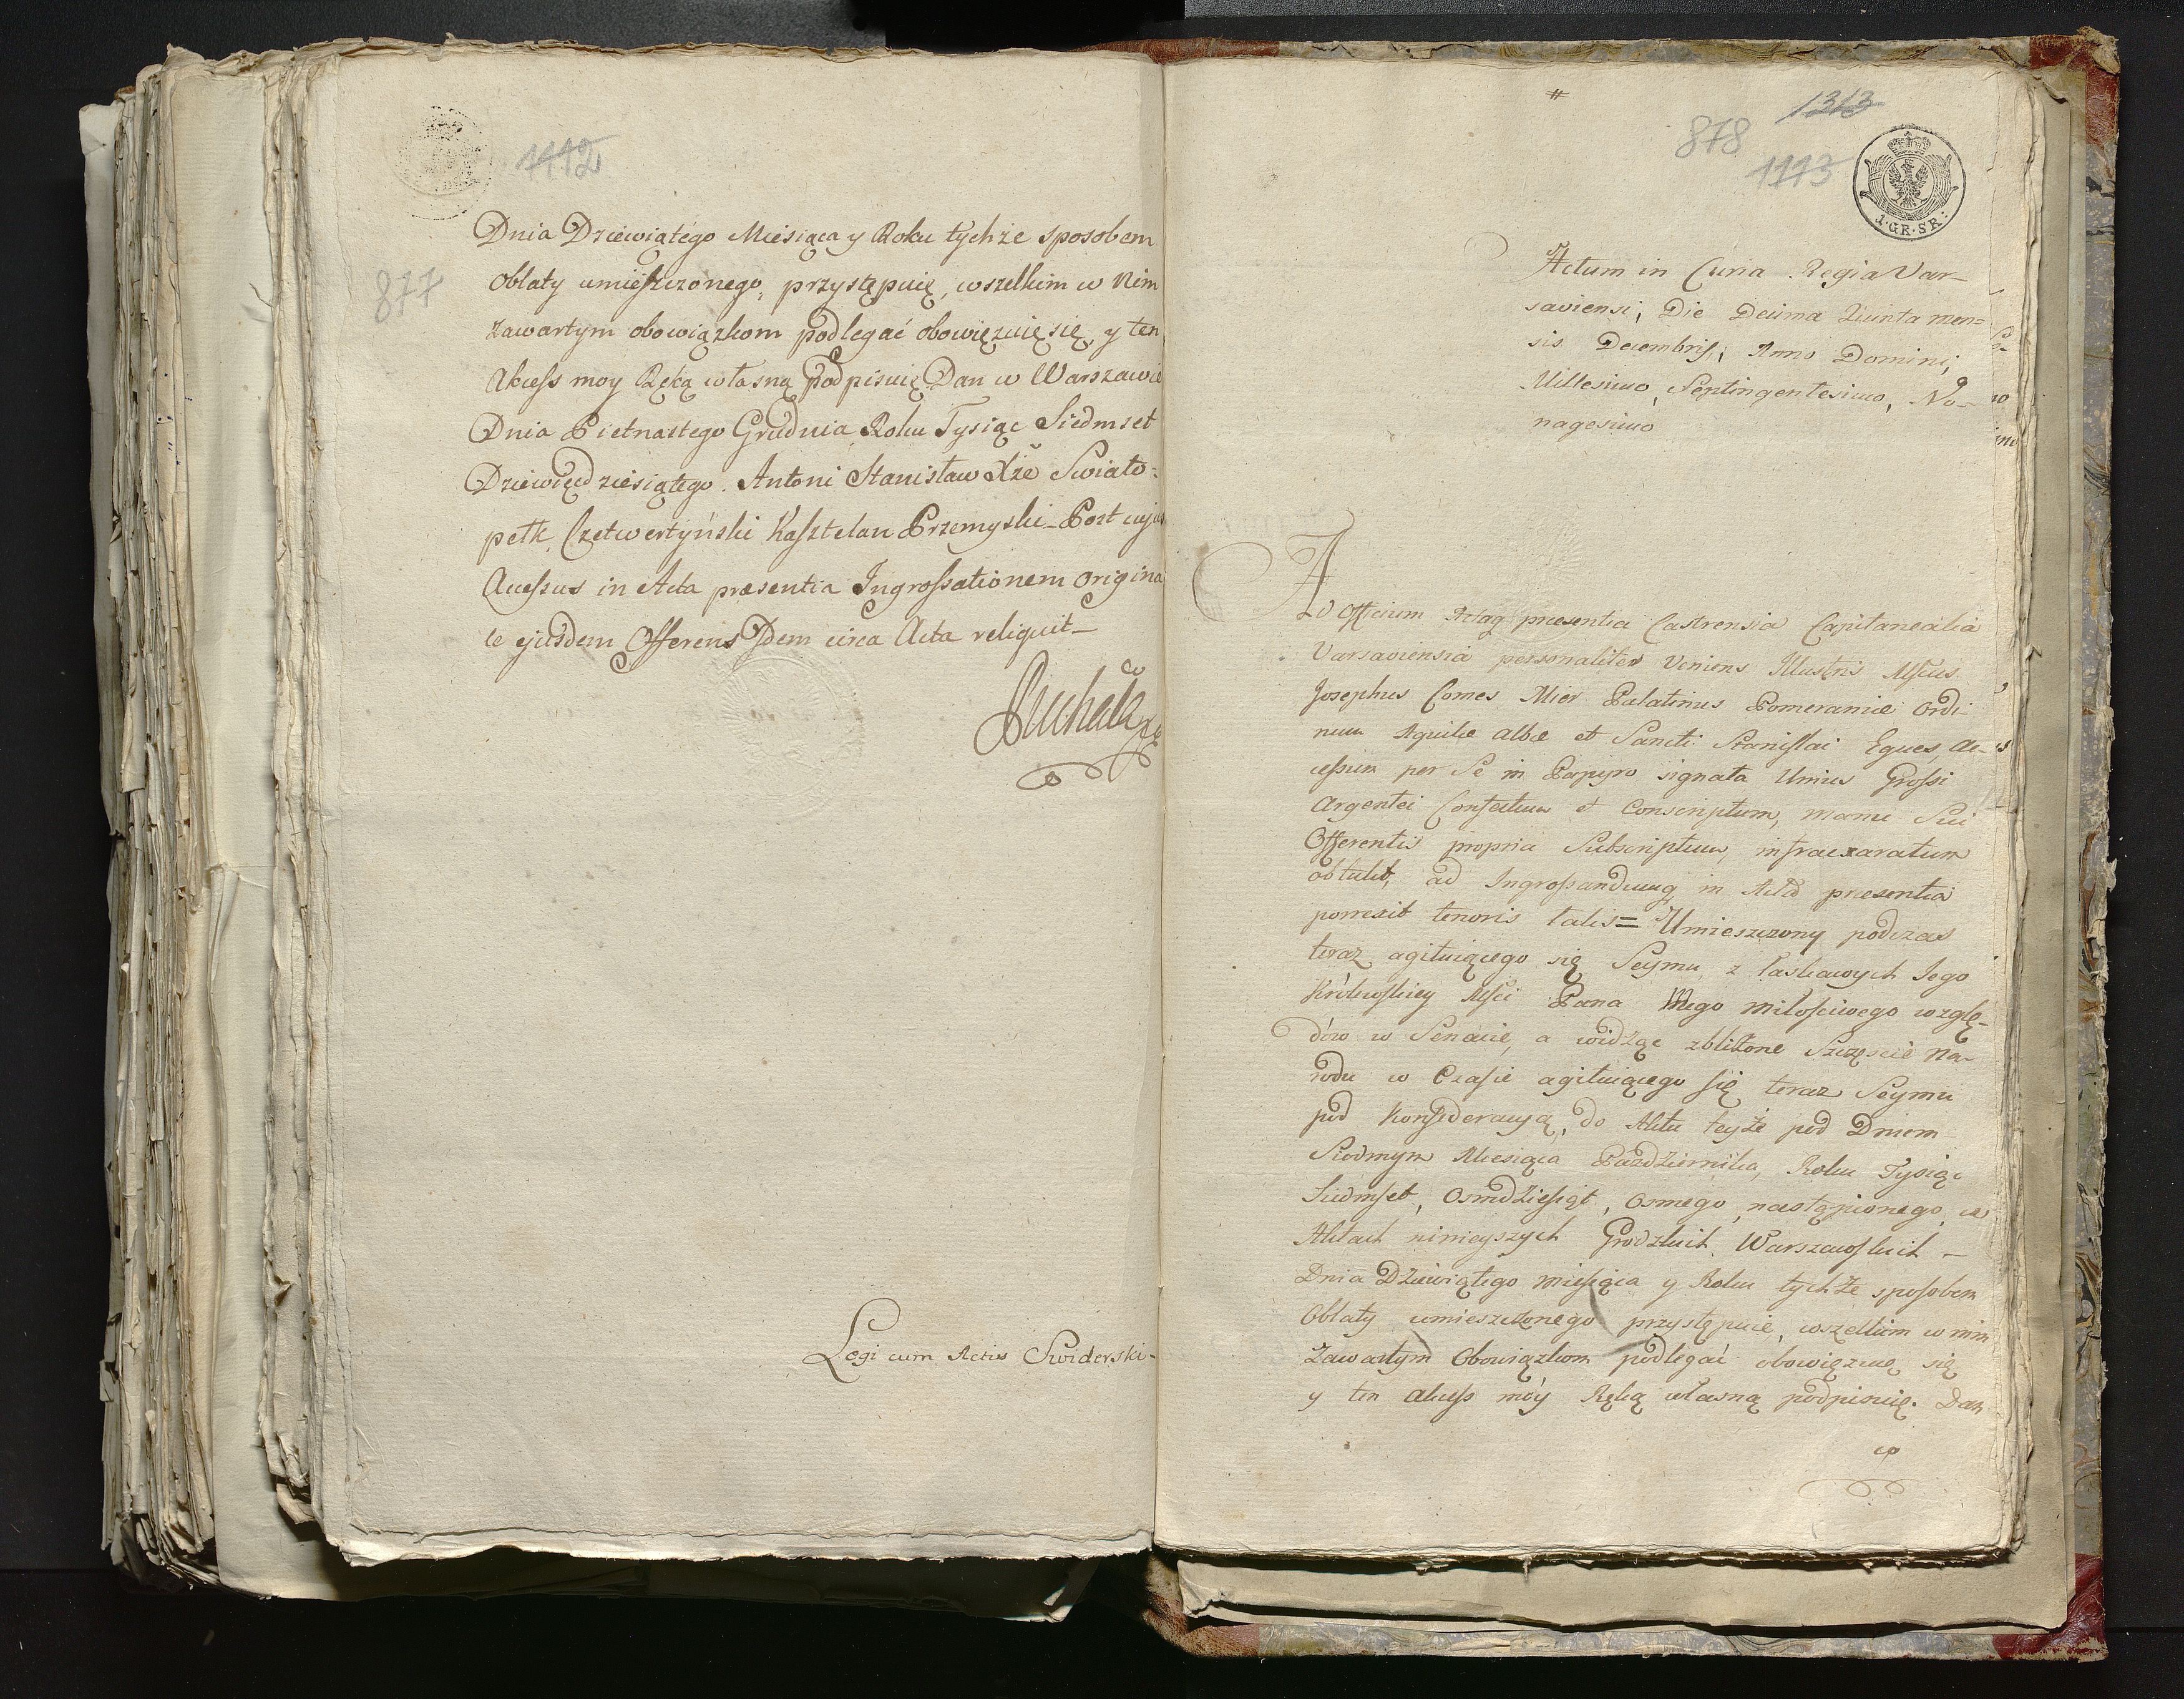 1112
877
Dnia Dziewiątego Miesiąca y Roku tychże sposobem
Oblaty umieszczonego, przystępuię, wszelkim w Nim
zawartym obowiązkom podlegać obowięzuię się, y ten
Akcess moy Ręką własną podpisuię. Dan w Warszawie
Dnia Pietnastego Grudnia Roku Tysiąc Siedmset
Dziewięćdziesiątego. Antoni Stanisław Xże Swiato=
pełk Czetwertyński Kasztelan Przemyski – Post cujus
Accessus in Acta præsentia Ingrossationem Origina
le ejusdem Offerens Idem circa Acta reliquit –
Legi cum Actis Swiderski –
#
1313
878
1113
1. GR. SR:
Actum in Curia Regia Var–
saviensi, Die Decima Quinta men=
sis Decembris, Anno Domini,
Millesimo, Septingentesimo, No–
nagesimo
Ad Officium Actaq præsentia Castrensia Capitanealia
Varsaviensia personaliter Veniens Illustris Mfcus
Josephus Comes Mier Palatinus Pomeraniæ Ordi
num Aquilæ albæ et Sancti Stanislai Eques, Ac–
cessum per Se in Papyro signata Unius Grossi
Argentei Confectum et Conscriptum, manu Sui
Offerentis propria Subscriptum, infraexaratum
obtulit, ad Ingrossandumq in Acta præsentia
porrexit tenoris talis = Umieszczony podczas
teraz agituiącego się Seymu z łaskawych Jego
Królewskiey Mści Pana Mego miłościwego wzglę–
dów w Senacie, a widząc zbliżone Szczęscie Na–
rodu w Czasie agituiącego się teraz Seymu
pod Konfederacyą, do Aktu teyże pod Dniem
Siodmym Miesiąca Października, Roku Tysiąc
Siedmset, Osmdziesiąt, Osmego, nastąpionego, w
Aktach ninieyszych Grodzkich Warszawskich –
Dnia Dziewiątego miesiąca y Roku tychże sposobem
Oblaty umieszczonego przystępuię, wszelkim w nim
Zawartym Obowiązkom podlegać obowięzuię się
y ten akcess móy Ręką własną podpisuię. Dan